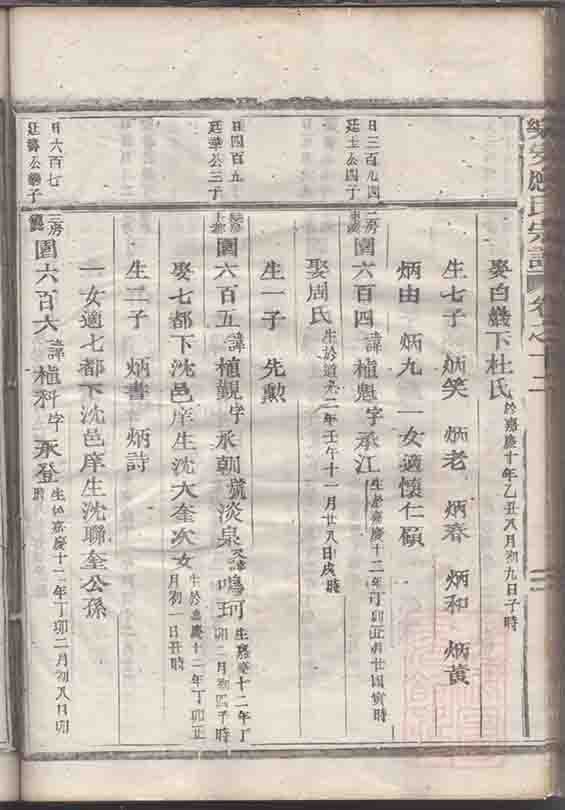 氏宗譜
卷之十三
娶白巖下杜氏 於嘉慶十年乙丑八月初九日子時
生七子 炳笑 炳老 炳春 炳和 炳黃
炳由 炳九 一女適懷仁碩
日三百九四
廷士公四子
二房
圓六百四 諱植魁字承江 生於嘉慶十二年丁卯正月廿四寅時
娶周氏 生於道光二年壬午十一月廿八日戌時
生一子 先勳
日四百五
廷華公三子
圓六百五 諱植觀字承朝號淡泉又諱鳴珂 生嘉慶十二年丁卯二月初四子時
娶七都下沈邑庠生沈大奎次女 生於嘉慶十二年丁卯正月初一日丑時
生二子 炳書 炳詩
一女適七都下沈邑庠生沈聯奎公孫
日六百七
廷 公 子
三房
圓六百六 諱植科字承登 生於嘉慶十二年丁卯二月初八日卯時